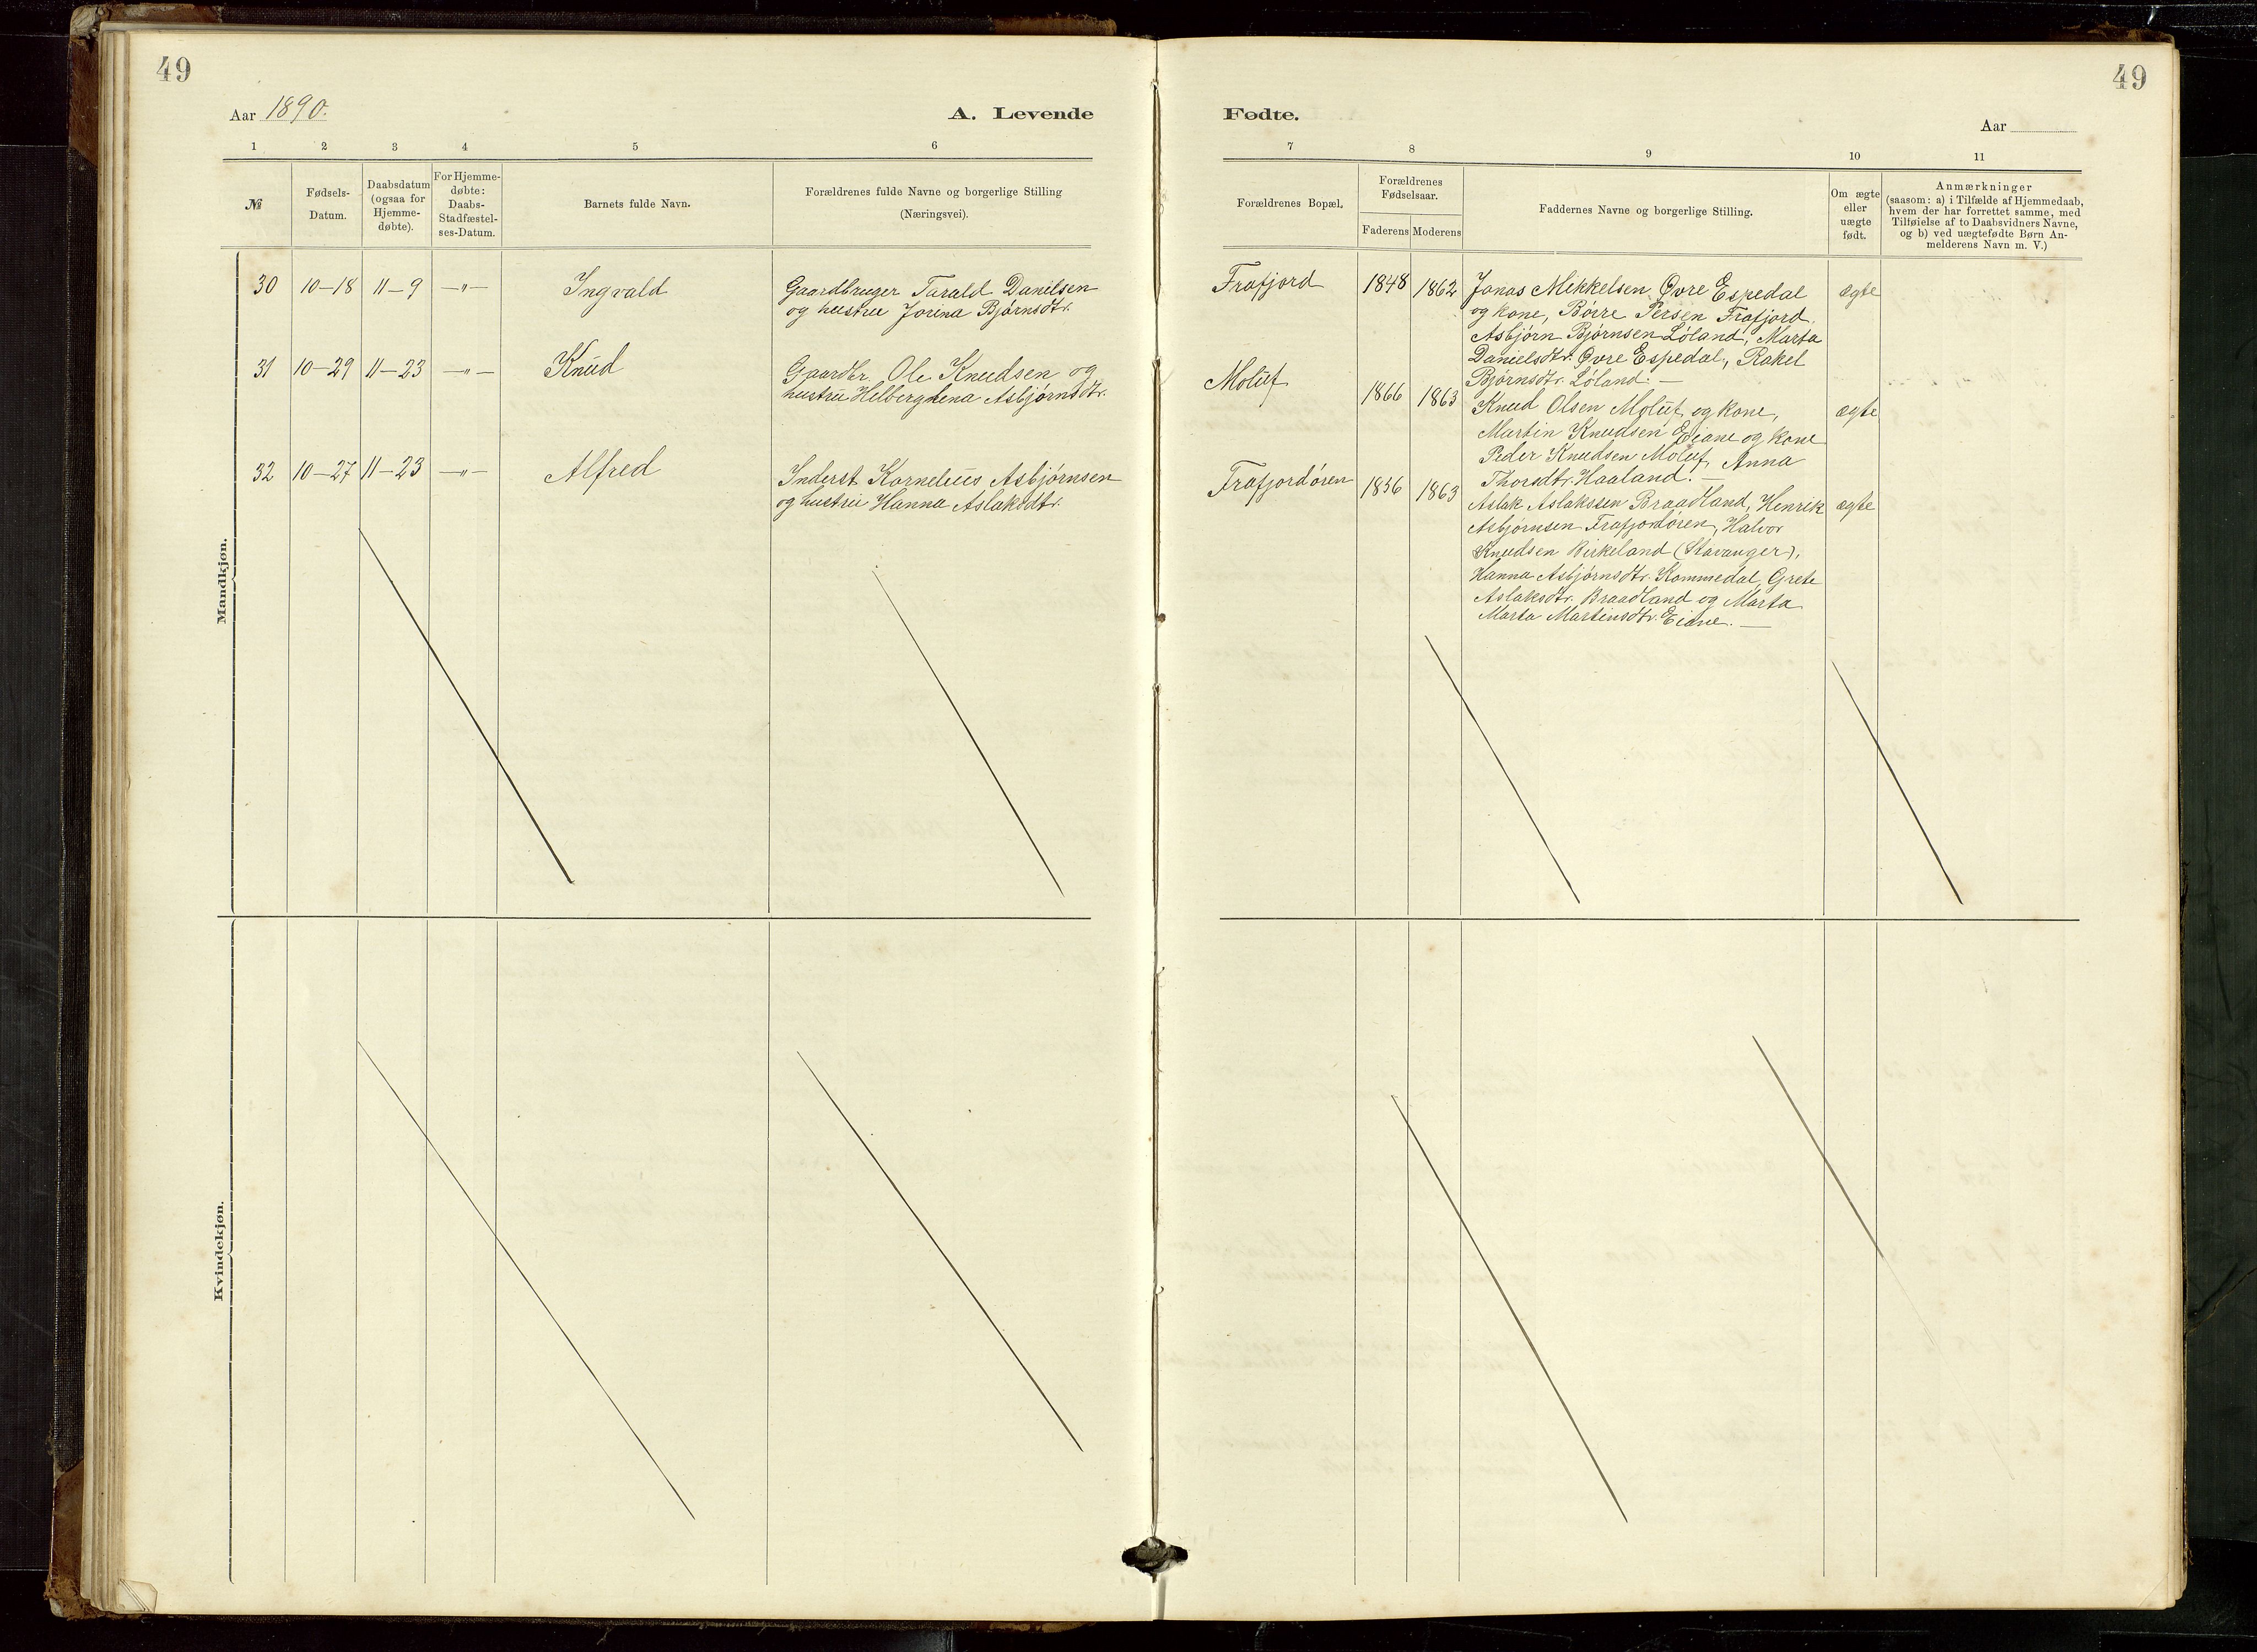 49
Aar 1890.
A. Levende
1 2 3 4 5 6
№
Fødsels-
Datum.
Daabsdatum
(ogsaa for
Hjemme-
døbte).
For Hjemme-
døbte:
Daabs-
Stadfæstel-
ses-Datum.
Barnets fulde Navn.
Forældrenes fulde Navne og borgerlige Stilling
(Næringsvei).
Mandkjøn.
30 10-18 11-9 -"- Ingvald Gaardbruger Tarald Danilsen
og hustru Jorina Bjørnsdtr.
31 10-29 11-23 -"- Knud Gaardbr. Ole Knudsen og
hustru Helberghena Asbjørnsdtr.
32 10-27 11-23 -"- Alfred Inderst Kornelius Asbjørnsen
og hustru Hanna Aslaksdtr.
Kvindekjøn.
49
Fødte.
Aar
7 8 9 10 11
Forældrenes Bopæl.
Forældrenes
Fødselsaar.
Faderens Moderens
Faddernes Navne og borgerlige Stilling.
Om ægte
eller
uægte
født.
Anmærkninger
(saasom: a) i Tilfælde af Hjemmedaab,
hvem der har forrettet samme, med
Tilføielse af to Daabsvidners Navne,
og b) ved uægtefødte Børn An-
melderens Navn m. V.)
Frafjord 1848 1862 Jonas Mikkelsen Øvre Espedal ægte
og kone, Børre Persen Frafjord,
Asbjørn Bjørnsen Løland, Marta
Danielsdtr. Øvre Espedal, Rakel
Bjørnsdtr. Løland. —
Moluf 1866 1863 Knud Olsen Moluf og kone, ægte
Martin Knudsen Eiane og kone
Peder Knudsen Moluf, Anna
Thorsdtr. Haaland. —
Frafjordøren 1856 1863 Aslak Aslaksen Braadland, Henrik ægte
Asbjørnsen Frafjordøren, Halvor
Knudsen Birkeland (Stavanger),
Hanna Asbjørnsdtr. Kommedal, Grete
Aslaksdtr. Braadland og Marta
Marta Martinsdtr. Eiane. —